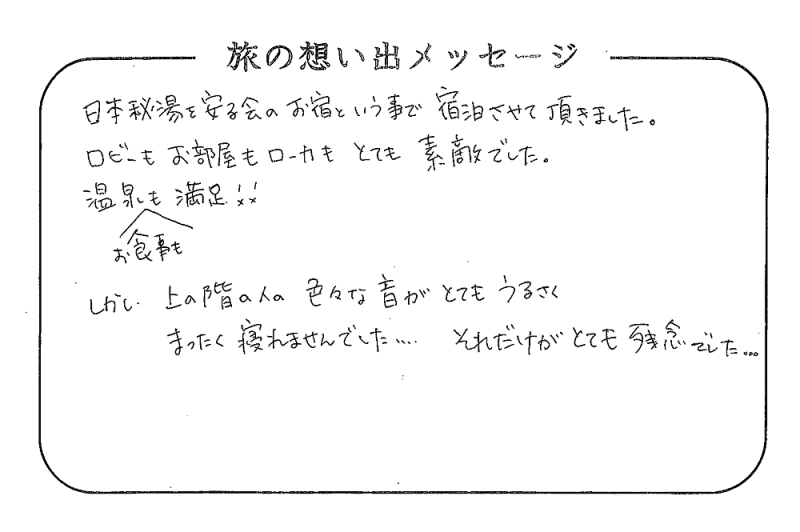 旅の想い出メッセージ
日本秘湯を守る会のお宿という事で 宿泊させて頂きました。
ロビーも お部屋も ローカも とても 素敵でした。
温泉も 満足!!
お食事も
しかし 上の階の人の 色々な音が とても うるさく
まったく 寝れませんでした‥‥ それだけが とても 残念でした…